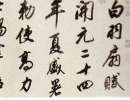 白羽扇賦
開元二十四
年夏盛暑
勅使高力